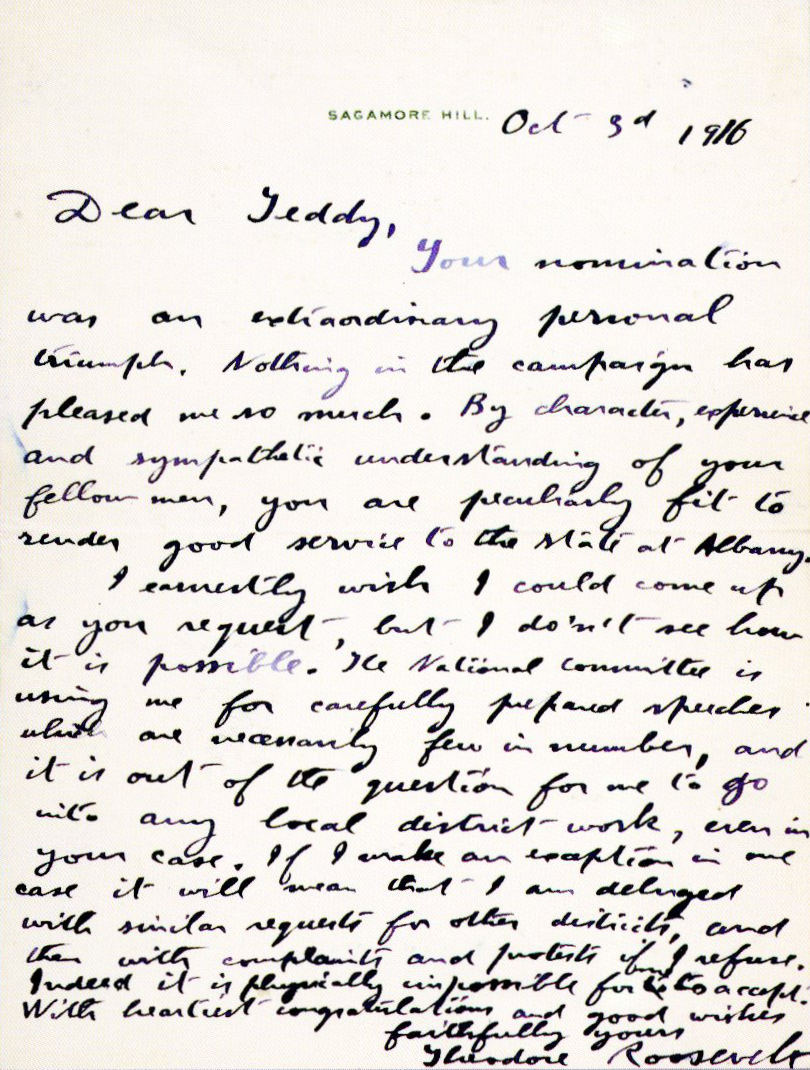 SAGAMORE HILL. Oct 3rd 1916
Dear Teddy,
Your nomination
was an extraordinary personal
triumph. Nothing in the campaign has
pleased me so much. By character, experience
and sympathetic understanding of your
fellow men, you are peculiarly fit to
render good service to the state at Albany.
I earnestly wish I could come up
as you request, but I do'sn't see how
it is possible. The National Committee is
using me for carefully prepared speeches
which are necessarily few in number, and
it is out of the question for me to go
into any local district work, even in
your case. If I make an exception in one
case it will mean that I am deluged
with similar requests for other districts, and
then with complaints and protests if I refuse.
Indeed it is physically impossible for me to accept.
With heartiest congratulations and good wishes
faithfully yours
Theodore Roosevelt